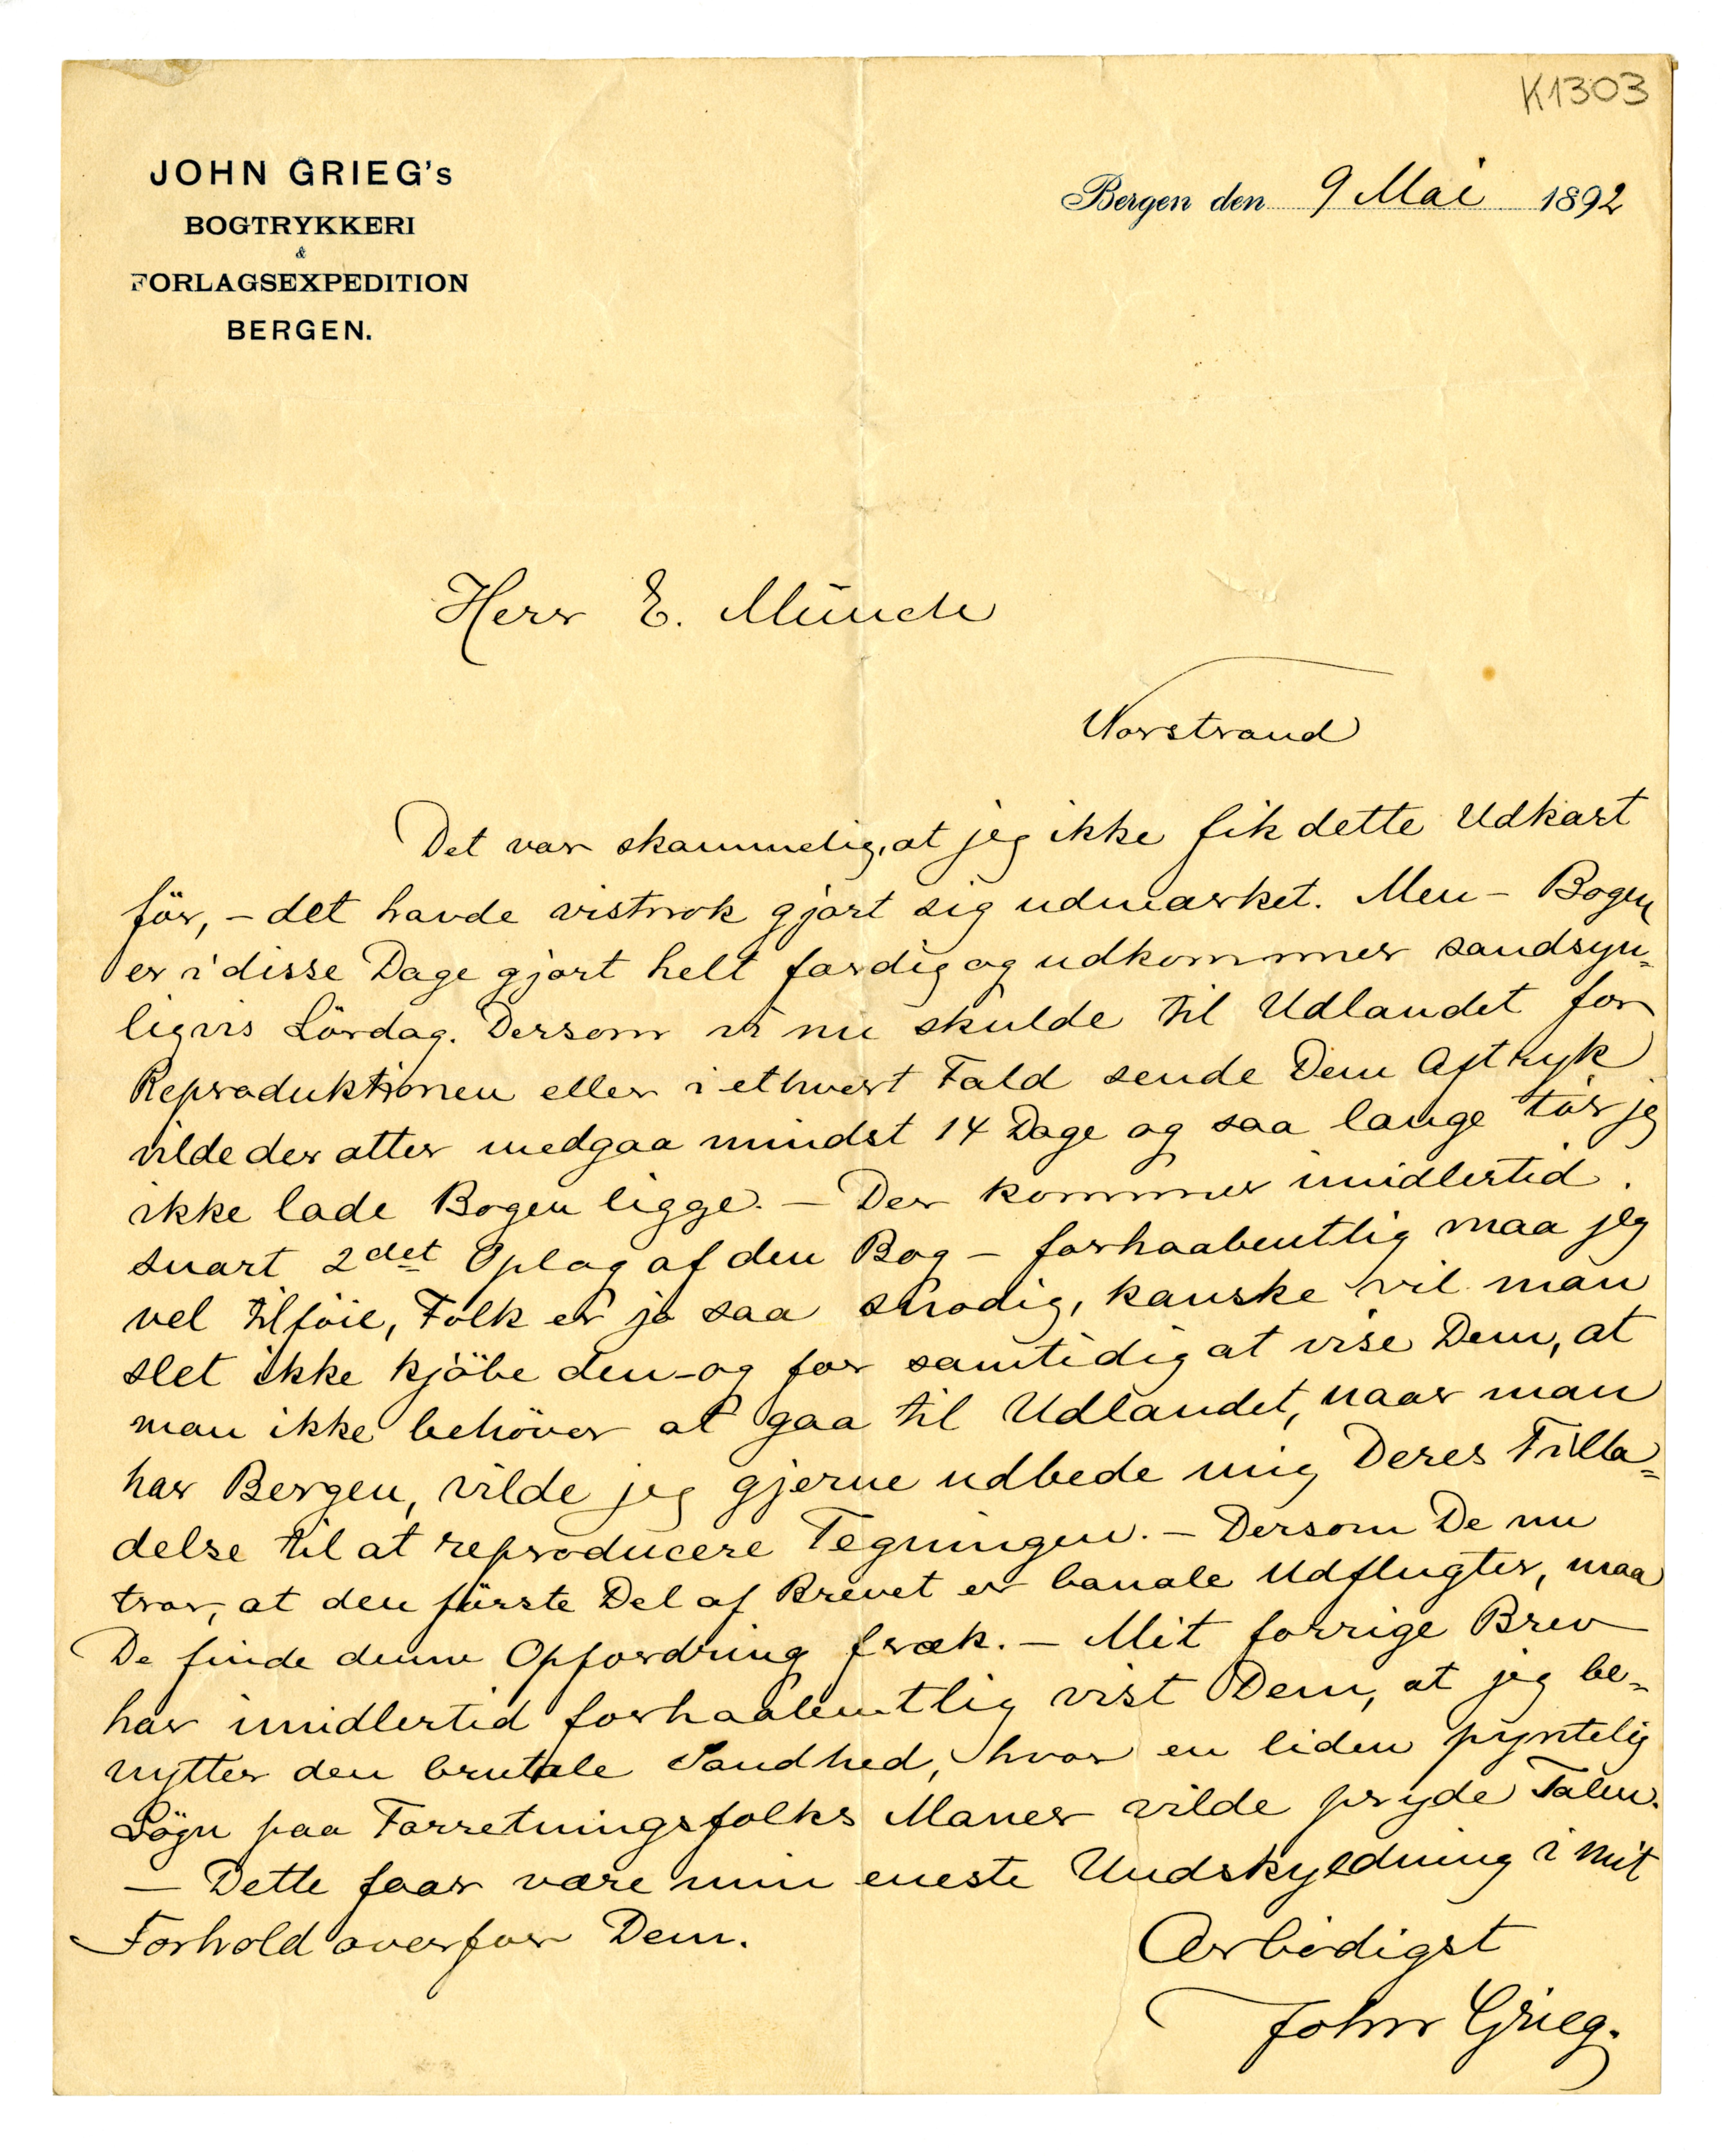 K1303
JOHN GRIEG's
BOGTRYKKERI
&
FORLAGSEXPEDITION
BERGEN.
Bergen den 9 Mai 1892
Herr E. Münch
Norstrand
Det var skammelig, at jeg ikke fik dette Udkast
för, – det havde vistnok gjort sig udmærket. Men – Bogen
er i disse Dage gjort helt færdig og udkommer sandsyn=
ligvis Lördag. Dersom vi nu skulde til Udlandet for
Reproduktionen eller i ethvert Fald sende Dem Aftryk
vilde der atter medgaa mindst 14 Dage og saa længe tör jeg
ikke lade Bogen ligge. – Der kommer imidlertid
snart 2det Oplag af den Bog – forhaabentlig maa jeg
vel tilföie, Folk er jo saa snodig, kanske vil man
slet ikke kjöbe den – og for samtidig at vise Dem, at
man ikke behöver at gaa til Udlandet, naar man
har Bergen, vilde jeg gjerne udbede mig Deres Tilla=
delse til at reproducere Tegningen. – Dersom De nu
tror, at den förste Del af Brevet er banale Udflugter, maa
De finde denne Opfordring fræk. – Mit forrige Brev
har imidlertid forhaabentlig vist Dem, at jeg be=
nytter den brutale Sandhed, hvor en liden pyntelig
Lögn paa Forretningsfolks Maner vilde pryde Talen.
– Dette faar være min eneste Undskyldning i mit
Forhold overfor Dem.
Ærbödigst
John Grieg.